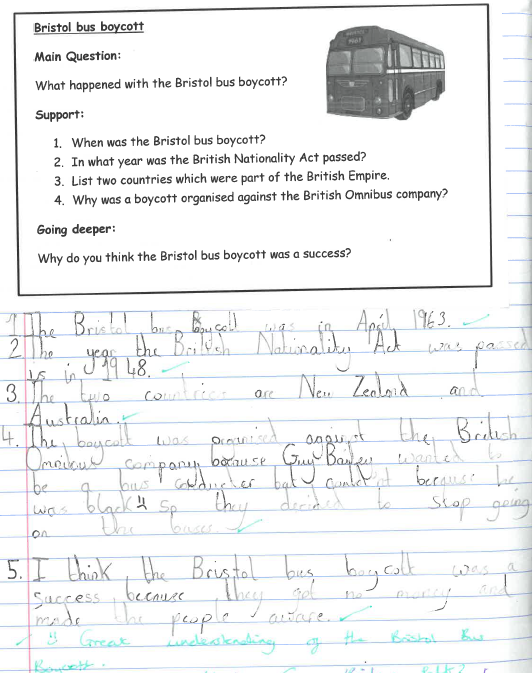 Bristol bus boycott
Main Question:
What happened with the Bristol bus boycott?
Support:
1. When was the Bristol bus boycott?
2. In what year was the British Nationality Act passed?
3. List two countries which were part of the British Empire.
4. Why was a boycott organised against the British Omnibus company?
Going deeper:
Why do you think the Bristol bus boycott was a success?
1. The Bristol bus Boycott was in April 1963.
2 The year the British Nationality Act was passed
is in 1948.
3. The two countries are New Zealand and
Australia.
4. The boycott was organised against the British
Omnibus company because Guy Bailey wanted to
be a bus conducter but couldn't because he
was black so they decided to stop going
on the buses.
5. I think the Bristol bus boycott was a
success because they got no money and
made the people aware.
Great understanding of the Bristol Bus
Boycott.